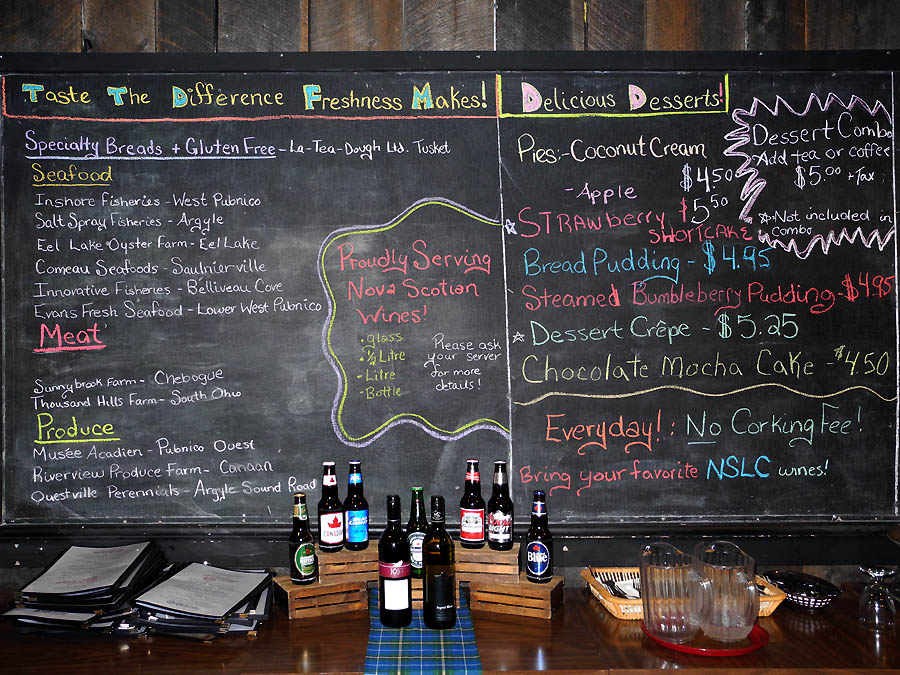 Taste The Difference Freshness Makes!
Specialty Breads + Gluten Free - La-Tea-Dough Ltd. Tusket
Seafood
Inshore Fisheries - West Pubnico
Salt Spray Fisheries - Argyle
Eel Lake Oyster Farm - Eel Lake
Comeau Seafoods - Saulnierville
Innovative Fisheries - Belliveau Cove
Evans Fresh Seafood - Lower West Pubnico
Meat
Sunnybrook Farm - Chebogue
Thousand Hills Farm - South Ohio
Produce
Musée Acadien - Pubnico Ouest
Riverview Produce Farm - Canaan
Questville Perennials - Argyle Sound Road
Proudly Serving
Nova Scotian
Wines!
• glass
• ½ Litre
- Litre
- Bottle
Please ask
your server
for more
details!
Delicious Desserts!
Pies:- Coconut Cream
$4.50
- Apple
$5.50
☆ Strawberry
Shortcake
Bread Pudding - $4.95
Steamed Bumbleberry Pudding - $4.95
☆ Dessert Crêpe - $5.25
Chocolate Mocha Cake - $4.50
Dessert Combo
Add tea or coffee
$5.00 + Tax
☆ Not included in
Combo
Everyday! : No Corking Fee!
Bring your favorite NSLC wines!
CANADIAN
LIGHT
Blue
JOST